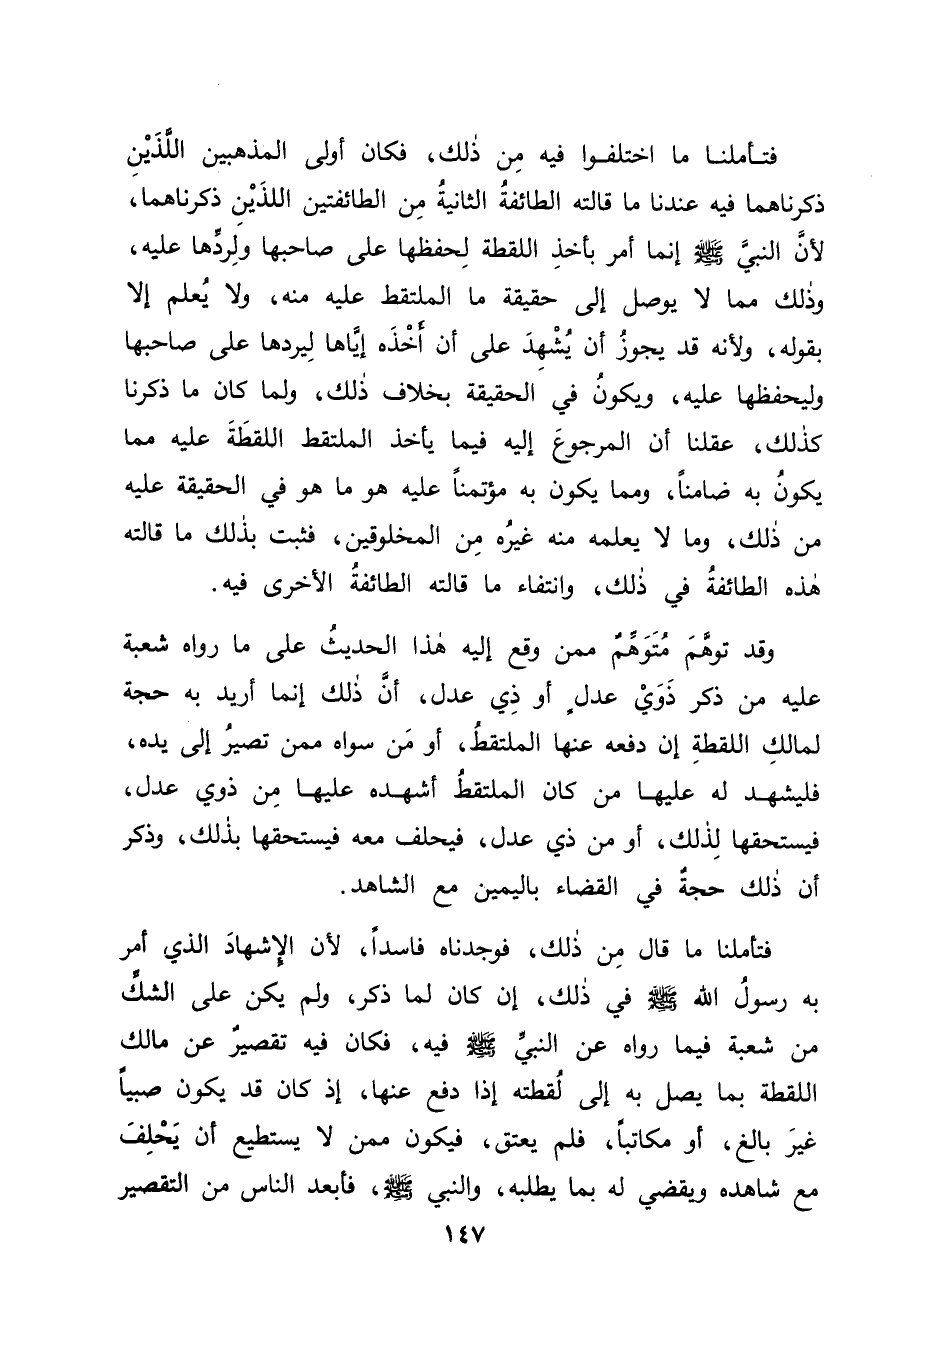 فتـأملنـا ما اختلفـوا فيه مِن ذٰلك، فكان أولى المذهبين اللَّذَيْنِ
ذكرناهما فيه عندنا ما قالته الطائفةُ الثانيةُ مِن الطائفتين اللذَيْنِ ذكرناهما،
لأنَّ النبيَّ ﷺ إنما أمر بأخذِ اللقطة لِحفظها على صاحبها ولِردِّها عليه،
وذٰلك مما لا يوصل إلى حقيقة ما الملتقط عليه منه، ولا يُعلم إلا
بقوله، ولأنه قد يجوزُ أن يُشْهِدَ على أن أَخْذَه إيَّاها لِيردها على صاحبها
وليحفظها عليه، ويكونُ في الحقيقة بخلاف ذٰلك، ولما كان ما ذكرنا
كذٰلك، عقلنا أن المرجوعَ إليه فيما يأخذ الملتقط اللقطَةَ عليه مما
يكونُ به ضامناً، ومما يكون به مؤتمناً عليه هو ما هو في الحقيقة عليه
من ذٰلك، وما لا يعلمه منه غيرُه مِن المخلوقين، فثبت بذٰلك ما قالته
هٰذه الطائفةُ في ذٰلك، وانتفاء ما قالته الطائفةُ الأخرى فيه.
وقد توهَّمَ مُتَوَهِّمٌ ممن وقع إليه هٰذا الحديثُ على ما رواه شعبة
عليه من ذكر ذَوَيْ عدلٍ أو ذِي عدل، أنَّ ذٰلك إنما أريد به حجة
لمالكِ اللقطةِ إن دفعه عنها الملتقطُ، أو مَن سواه ممن تصيرُ إلى يده،
فليشهـد له عليهـا من كان الملتقطُ أشهـده عليهـا مِن ذوي عدل،
فيستحقها لِذٰلك، أو من ذي عدل، فيحلف معه فيستحقها بذٰلك، وذكر
أن ذٰلك حجةٌ في القضاء باليمين مع الشاهد.
فتأملنا ما قال مِن ذٰلك، فوجدناه فاسداً، لأن الإشهادَ الذي أمر
به رسولُ الله ﷺ في ذٰلك، إن كان لما ذكر، ولم يكن على الشكِّ
من شعبة فيما رواه عن النبيِّ ﷺ فيه، فكان فيه تقصيرٌ عن مالك
اللقطة بما يصل به إلى لُقطته إذا دفع عنها، إذ كان قد يكون صبياً
غيرَ بالغ، أو مكاتباً، فلم يعتق، فيكون ممن لا يستطيع أن يَحْلِفَ
مع شاهده ويقضي له بما يطلبه، والنبي ﷺ، فأبعد الناس من التقصير
١٤٧